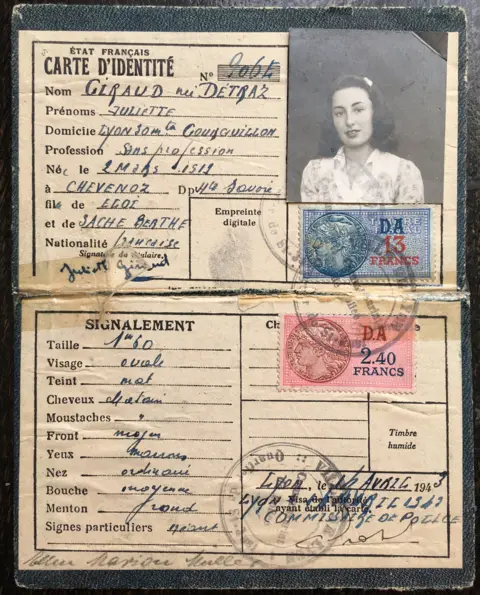 ÉTAT FRANÇAIS
CARTE D'IDENTITÉ
Nº 2064
Nom GIRAUD née DÉTRAZ
Prénoms JULIETTE
Domicile LYON 50 mtée Gourguillon
Profession Sans profession
Née le 2 MARS 1919
à CHEVENOZ Dpt Hte Savoie
fille de
et de SACHE BERTHE
Nationalité française
Signature du titulaire,
Juliette Giraud
Empreinte
digitale
DA
13
FRANCS
SIGNALEMENT
Taille 1m60
Visage ovale
Teint mat
Cheveux châtain
Moustaches "
Front moyen
Yeux marrons
Nez ordinaire
Bouche moyenne
Menton rond
Signes particuliers néant
DA
2.40
FRANCS
Timbre
humide
LYON, le AVRIL 1943
LYON
Visa de l'autorité
ayant établi la carte,
COMMISSAIRE DE POLICE
Marion